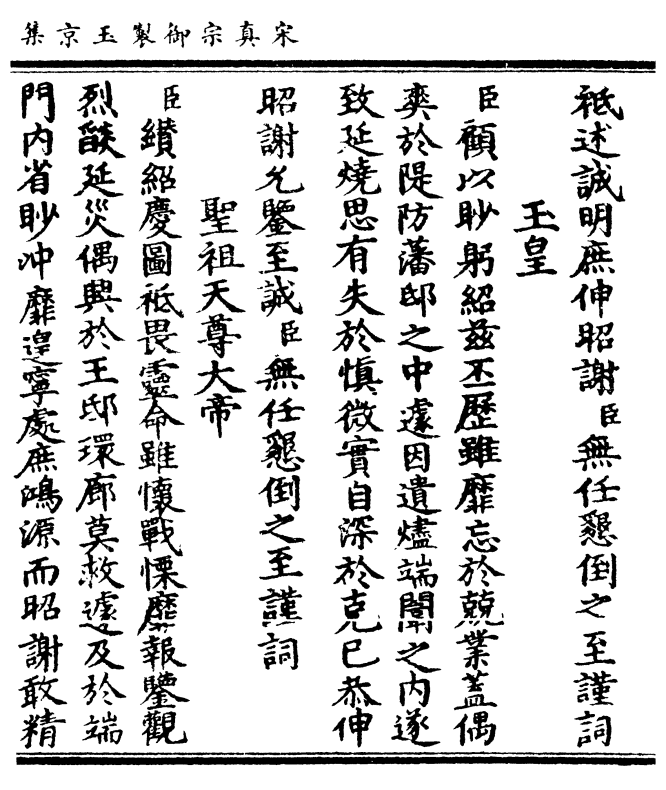 宋真宗御製玉京集
祗述誠明庶伸昭謝臣無任懇倒之至謹詞
玉皇
臣顧以眇躬紹茲丕歷雖靡忘於兢業蓋偶
爽於隄防藩邸之中遽因遺燼端闈之內遂
致延燒思有失於慎微實自深於克已恭伸
昭謝允鑒至誠臣無任懇倒之至謹詞
聖祖天尊大帝
臣纘紹慶圖祗畏靈命雖懷戰慄靡報鑒觀
烈燄延災偶興於王邸環廊莫救遽及於端
門內省眇冲靡遑寧處庶鴻源而昭謝敢精